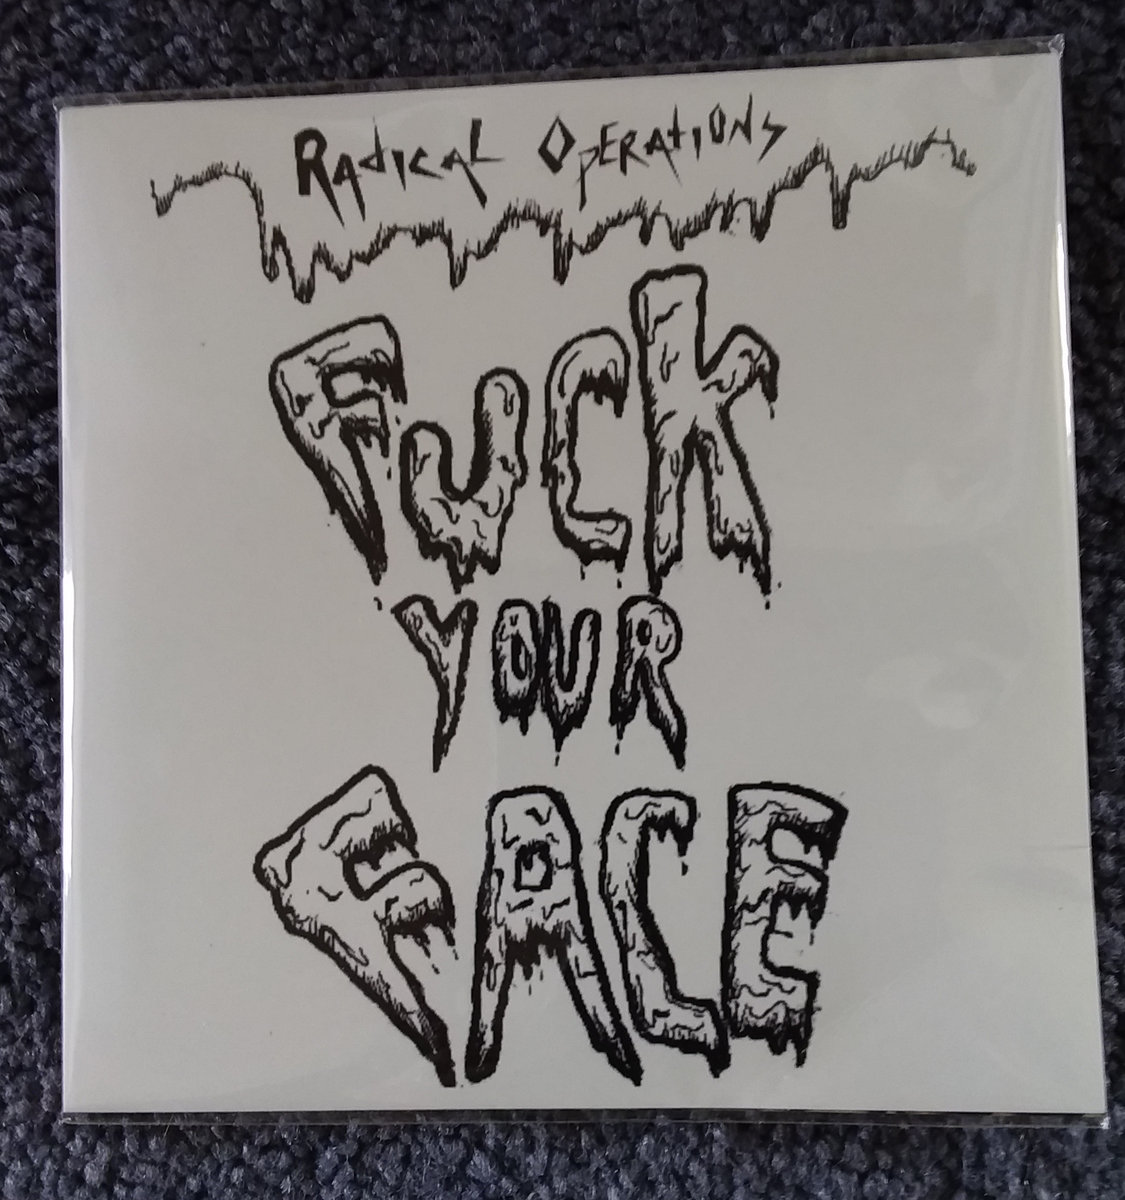 Radical Operations
Fuck
Your
Face